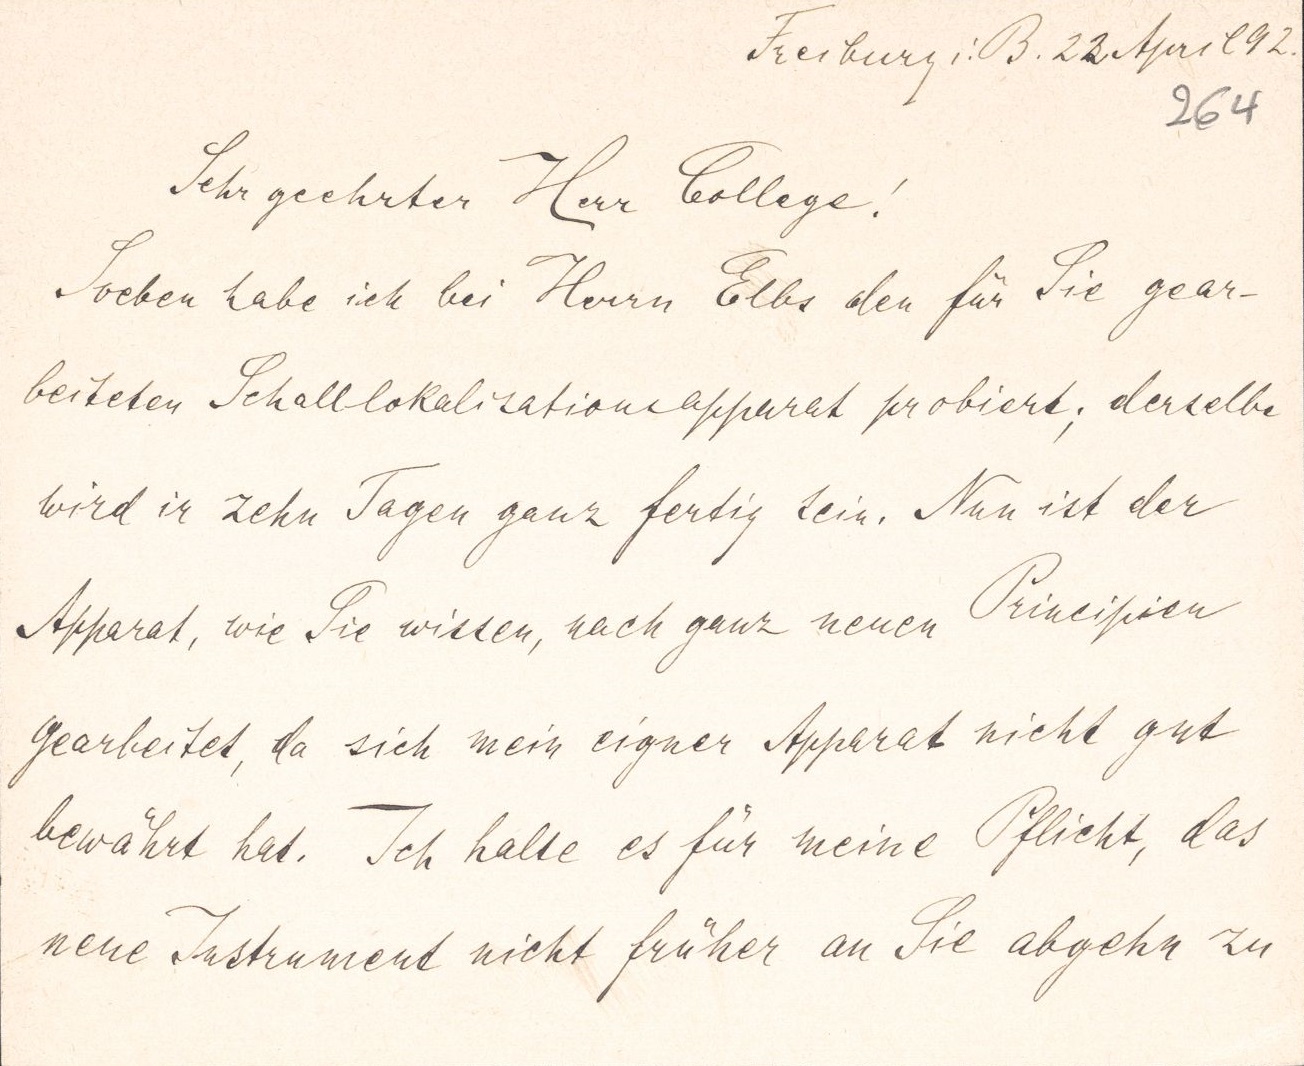 Freiburg i. B. 22 April 92.
264
Sehr geehrter Herr College!
Soeben habe ich bei Herrn Elbs den für Sie gear-
beiteten Schalllokalisationsapparat probiert; derselbe
wird in zehn Tagen ganz fertig sein. Nun ist der
Apparat, wie Sie wissen, nach ganz neuen Principien
gearbeitet, da sich mein eigner Apparat nicht gut
bewährt hat. Ich halte es für meine Pflicht, das
neue Instrument nicht früher an Sie abgehn zu